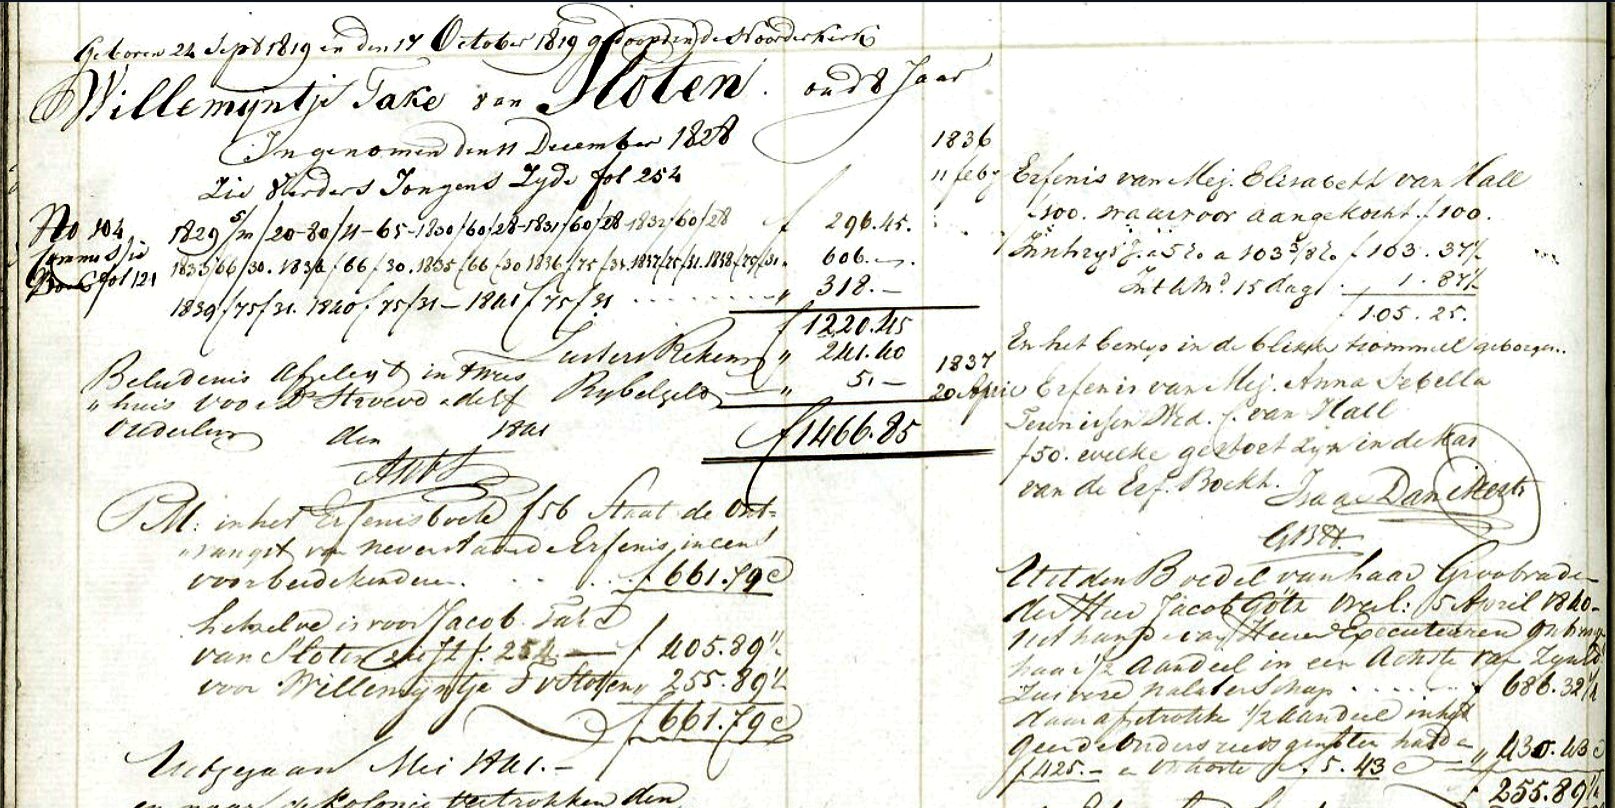 Geboren 24 Sept 1819 en den 17 October 1819 gedoopt in de Noorderkerk
Willemyntje Take van Sloten. oud 8 Jaar
Ingenomen den 11 December 1828
Zie Verders Jongens Zyde fol 254
No 104. 1829 5/m /20-80/11-65-1830/60/28-1831/60/28-1832/60/28 f 296.45.
fol 121 1833/66/30. 1834/66/30. 1835/66/30 1836/75/31. 1837/75/31. 1838/75/31. " 606.-
1839/75/31. 1840/75/31 - 1841/75/31 " 318.-
f 1220.45
Zusters Reken " 241.40
Belydenis Afgelegt in t wees
huis voor Ds Rybelgeld " 5.-
den 1841
f 1466.85
PM: in het Erfenisboek f 56 Staat de Ont-
vangst van nevenstaande Erfenis, in eens
voor beide kinderen. f 661.79 c
hetzelve is voor Jacob Take
van Sloten zie J Z f. 254 — f 405.89 1/2
voor Willemyntje T v Sloten " 255.89 1/2
f 661.79 c
Uitgegaan Mei 1841.-
en naar de Kolonie Vertrokken den
1836
11 feb Erfenis van Mej. Elisabeth van Hall
f 100. waarvoor aangekocht f 100.
a 5 % a 103 3/8 % f 103.37 1/2
Int 4 Md 15 dag 1.87 1/2
f 105.25.
En het bewys in de blikke trommel geborgen.
1837
20 April Erfenis van Mej. Anna Sebella
Teunissen Wed. C. van Hall
f 50. welke gestoet zyn in de Kas
van de Erf. Boekh. Isaac Dan
Uit den Boedel van haar Grootvader
der Heer Jacob Götz Overl: 5 April 1840-
Uit hande van Heeren Executeuren
haar 1/2 Aandeel in een Achtste van Zynde
Zuivere nalatenschap f 686.32 1/2
daar afgetrokke 1/2 aandeel in het
geen de Ouders reeds genoten hadde " 430.43 c
f 425.- " 5.43 c
f 255.89 1/2